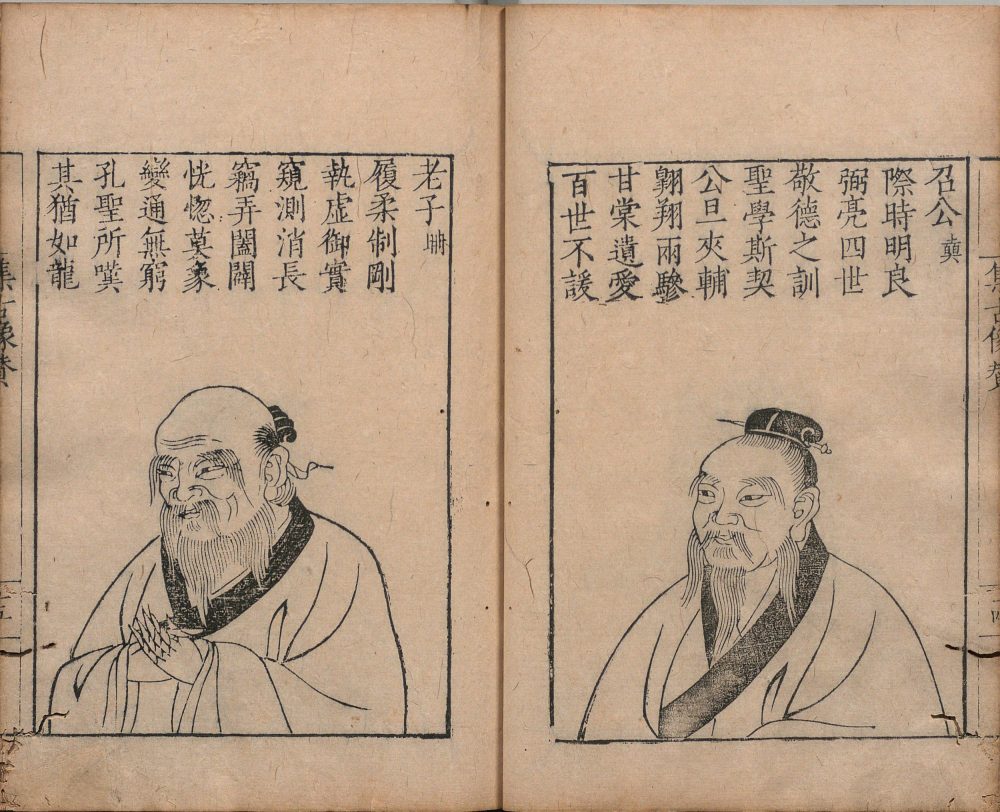 集古像贊
召公奭
際時明良
弼亮四世
敬德之訓
聖學斯契
公旦夾輔
翺翔兩驂
甘棠遺愛
百世不諼
老子耼
履柔制剛
執虛御實
窺測消長
竊弄闔闢
恍惚莫象
變通無窮
孔聖所嘆
其猶如龍
集古像贊